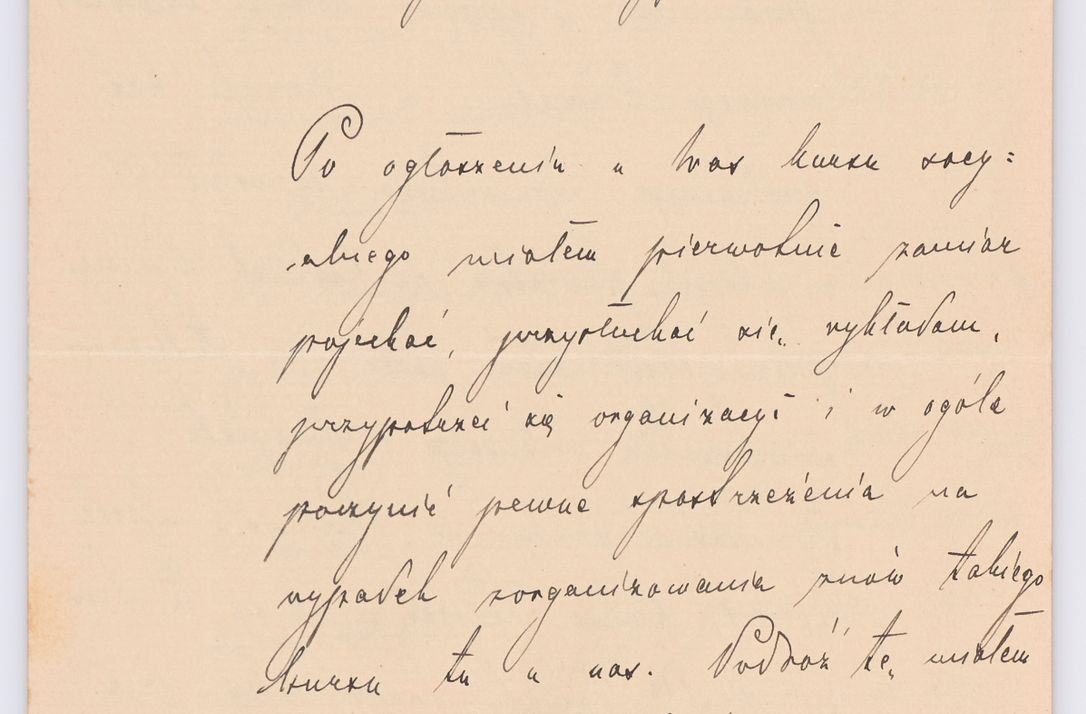 Po ogłoszeniu u Was kursu socy=
alnego miałem pierwotnie zamiar
pojechać, przysłuchać się wykładom,
przypatrzeć się organizacyi i w ogóle
poczynić pewne spostrzeżenia na
wypadek zorganizowania znów takiego
kursu tu u nas. Podróż tę miałem